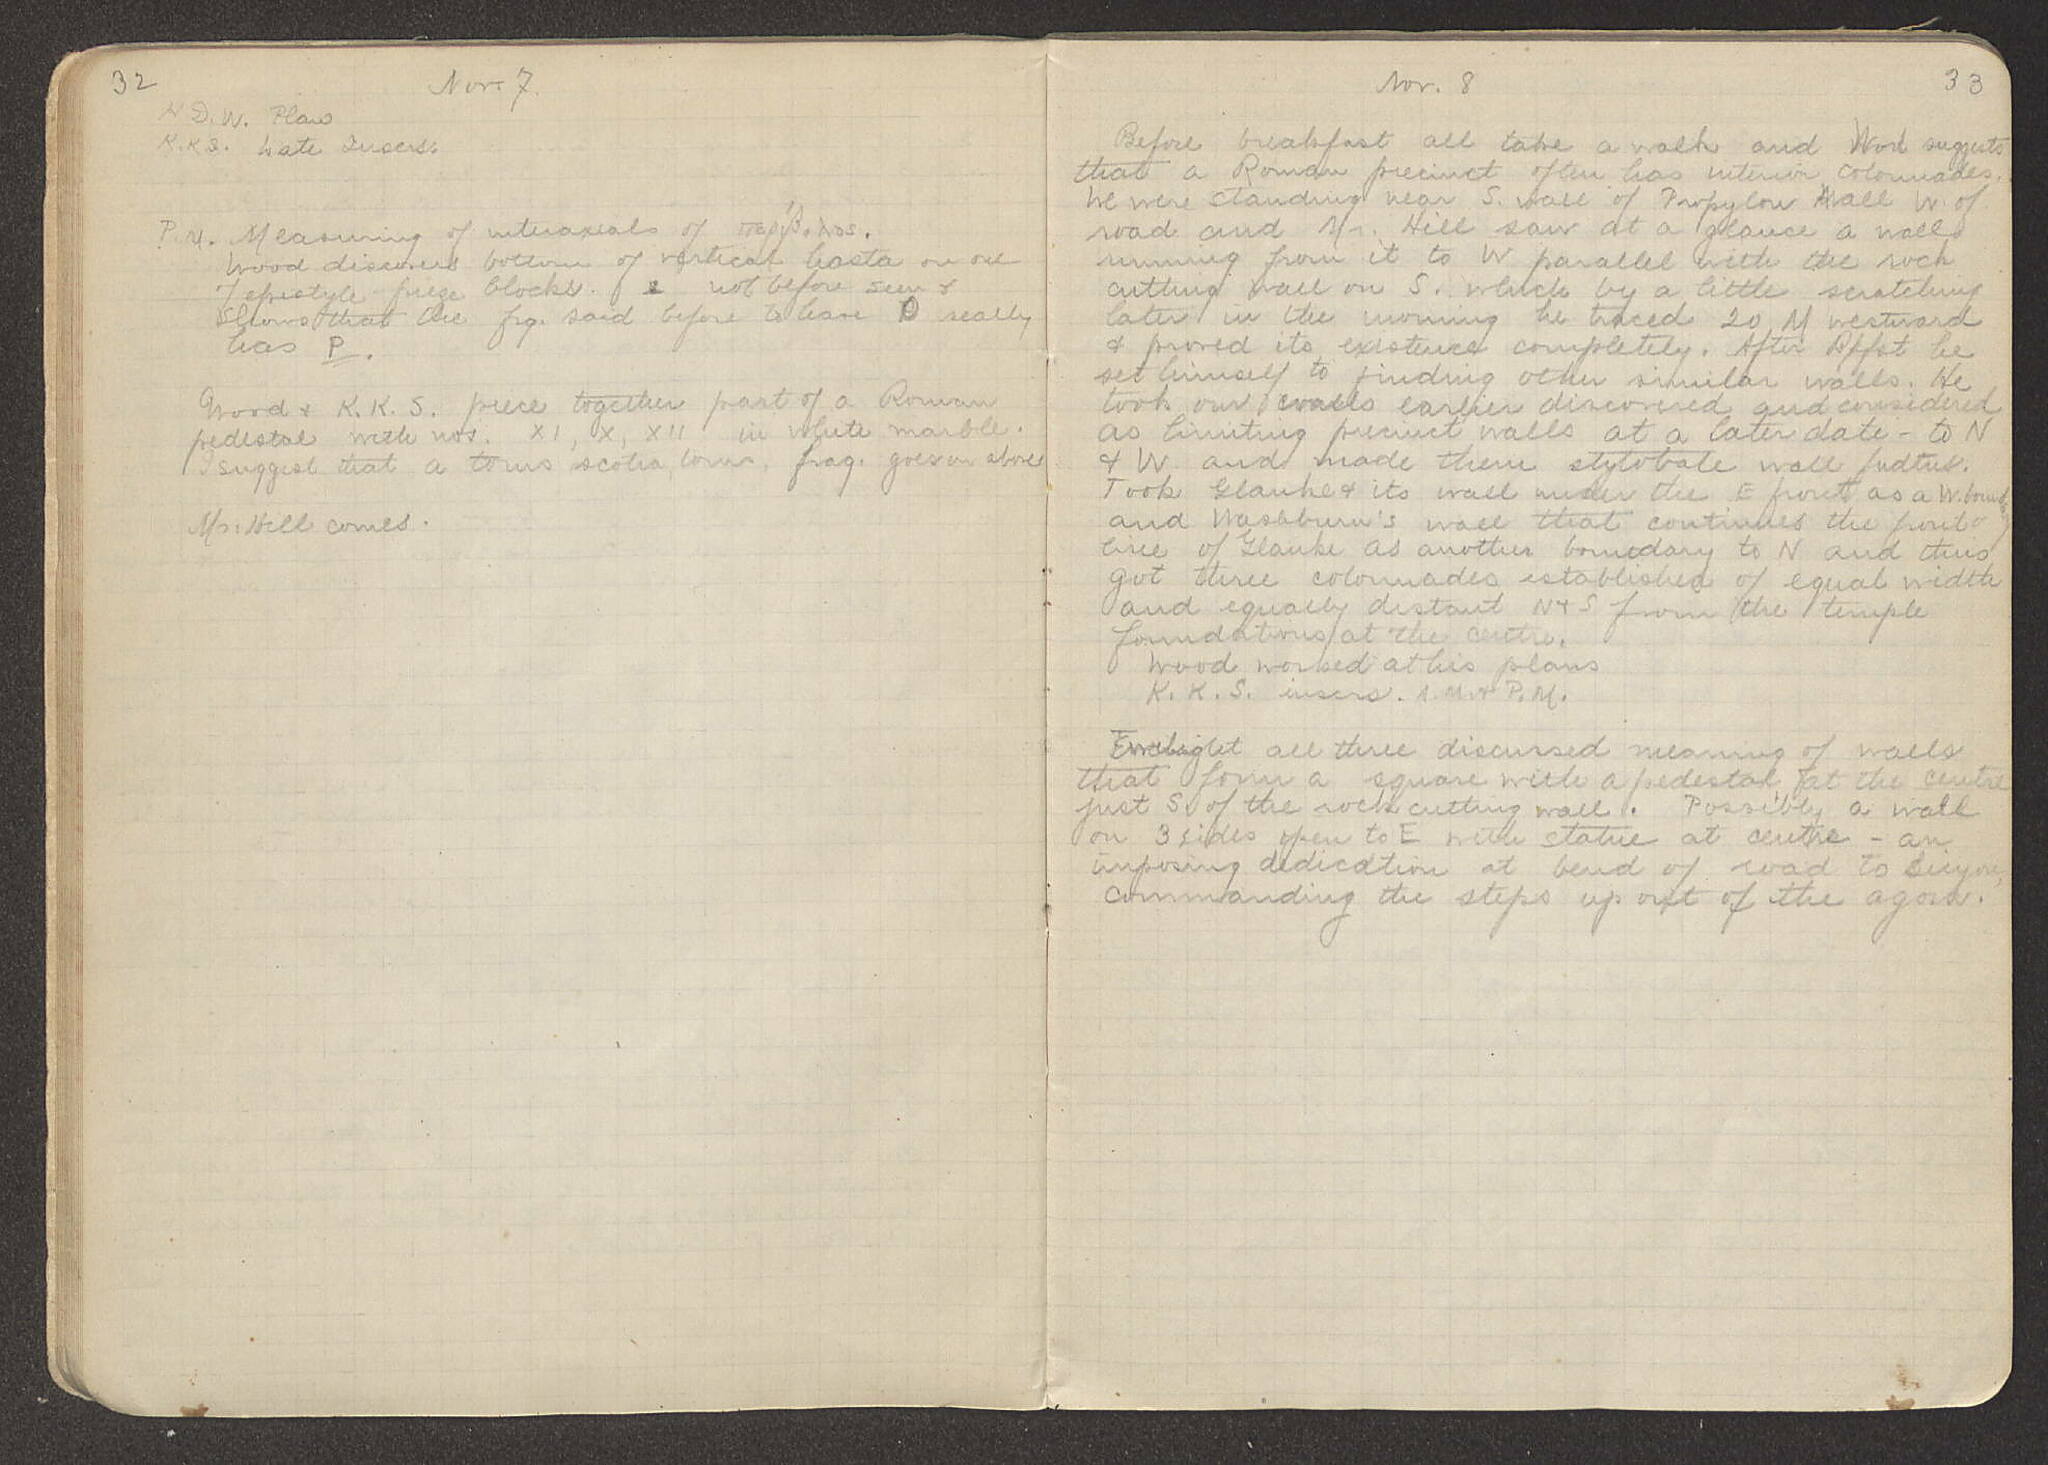 32
Nov. 7.
H D. W. Plans
K.K.S. Late Inscrs.
P.M. Measuring of interaxials of περίβολος.
Wood discovers bottom of vertical hasta on one
of epistyle frieze blocks. not before seen &
shows that the frg. said before to have O really
has P.
Wood & K. K. S. piece together part of a Roman
pedestal with nos. XI, X, XII in white marble.
I suggest that a torus scotia, torus, frag. goes on above
Mr. Hill comes.
Nov. 8
33
Before breakfast all take a walk and Wood suggests
that a Roman precinct often has interior colonnades.
We were standing near S. wall of Propylon Hall W. of
road and Mr. Hill saw at a glance a wall
running from it to W parallel with the rock
cutting wall on S. which by a little scratching
later in the morning he traced 20 M westward
& proved its existence completely. After Bkfst he
set himself to finding other similar walls. He
took our walls earlier discovered and considered
as limiting precinct walls at a later date - to N
& W. and made them stylobate wall
Took Glauke & its wall under the E front as a W. boundary
and Washburn's wall that continues the front
line of Glauke as another boundary to N and thus
got three colonnades established of equal width
and equally distant N & S from the temple
foundations at the centre.
Wood worked at his plans
K. K. S. inscrs. A.M. & P.M.
Twilight all three discussed meaning of walls
that form a square with a pedestal at the centre
just S. of the rock cutting wall. Possibly a wall
on 3 sides open to E with statue at centre - an
imposing dedication at bend of road to Sicyon,
commanding the steps up out of the agora.